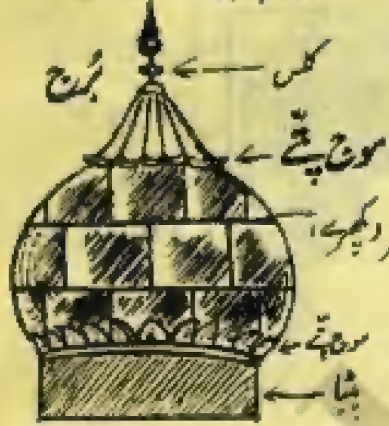 کلس
برج
موج پتّے
موج پتّے
پٹا